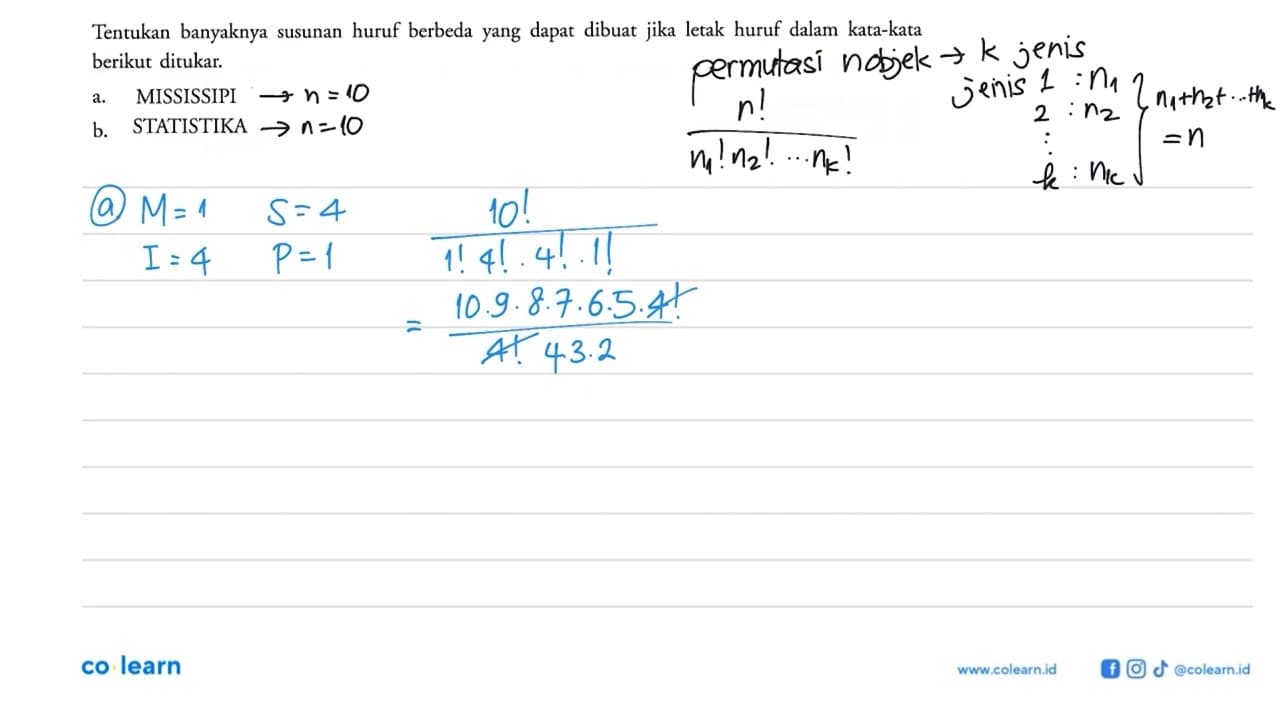 Tentukan banyaknya susunan huruf berbeda yang dapat dibuat jika letak huruf dalam kata-kata
berikut ditukar.
a. MISSISSIPI → n = 10
b. STATISTIKA → n = 10
permutasi n objek → k jenis
n!
n₁! n₂! ... nₖ!
jenis 1 : n₁
2 : n₂
⋮
k : nₖ
n₁+n₂+...+nₖ
= n
ⓐ M = 1 S = 4
I = 4 P = 1
10!
1! 4! . 4! . 1!
= 10.9.8.7.6.5.4!
4! 4 3.2
co learn
www.colearn.id @colearn.id